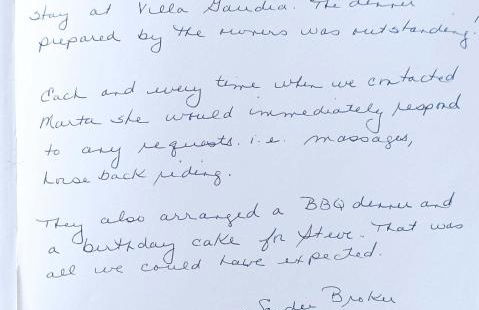 stay at Villa Gaudia. The dinner
prepared by the owners was outstanding!
Each and every time when we contacted
Marta she would immediately respond
to any requests. i.e. massages,
horse back riding.
They also arranged a BBQ dinner and
a birthday cake for Steve. That was
all we could have expected.
Broker